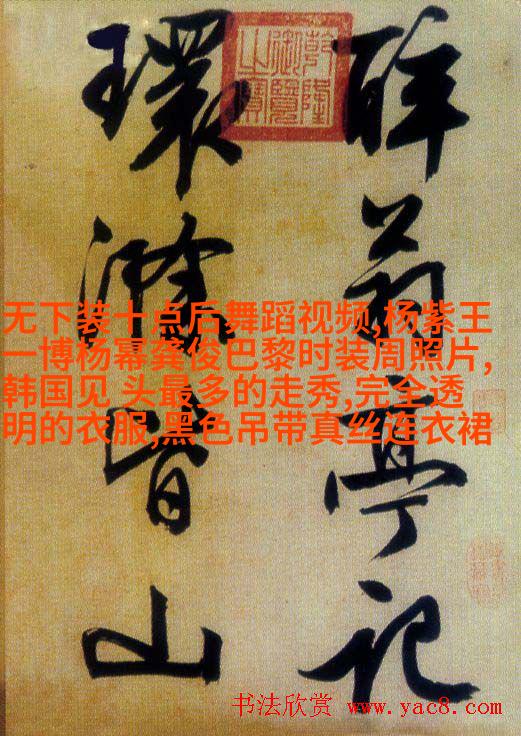 醉翁亭記
環滁皆山
乾隆
御覽
之寶
无下装十点后舞蹈视频,杨紫王
一博杨幂龚俊巴黎时装周照片,
韩国见 头最多的走秀,完全透
明的衣服,黑色吊带真丝连衣裙
书法欣赏 www.yac8.com